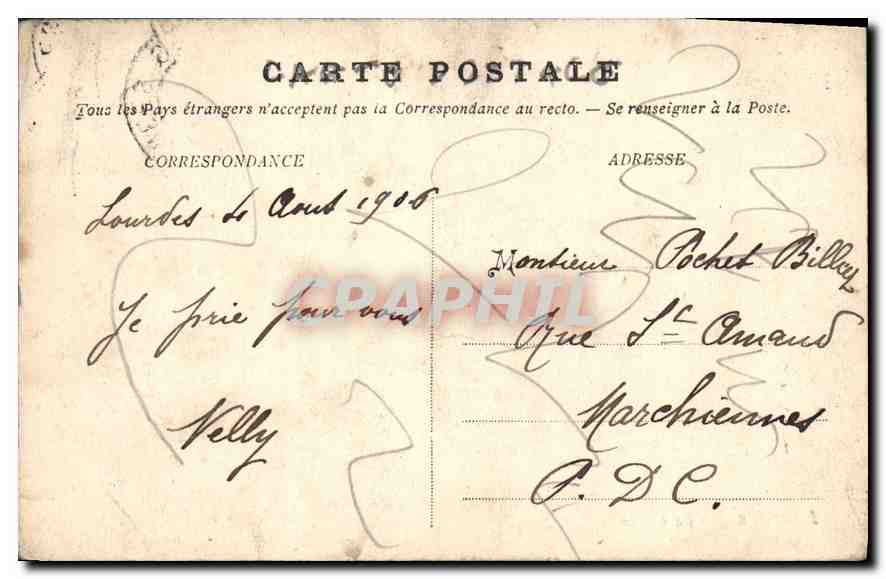 CARTE POSTALE
Tous les Pays étrangers n'acceptent pas la Correspondance au recto. — Se renseigner à la Poste.
CORRESPONDANCE
ADRESSE
Lourdes 4 Aout 1906
Je prie pour vous
Nelly
Monsieur Pochet
Rue St Amand
Marchiennes
P. D C.
CPAPHIL